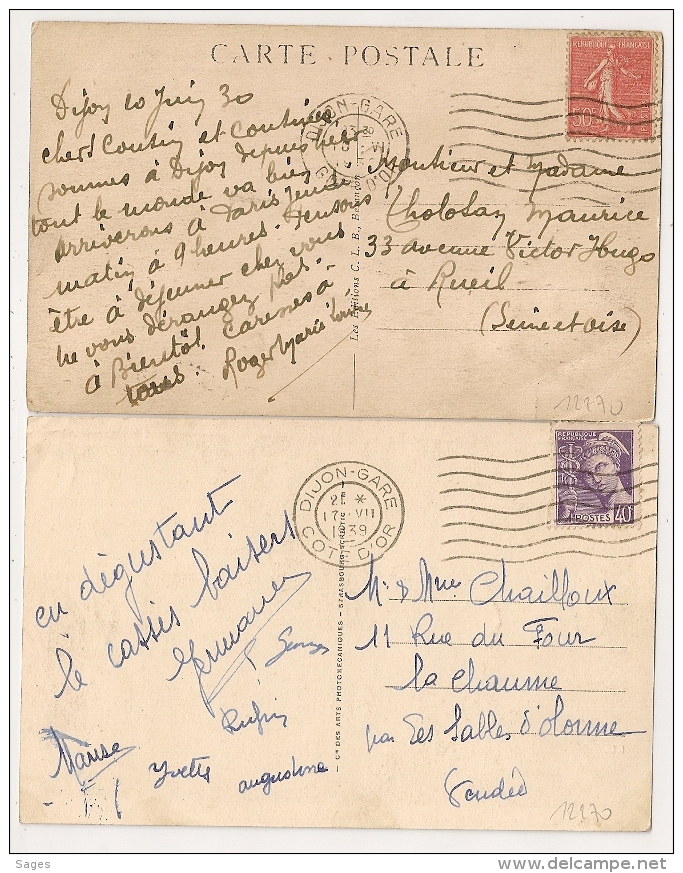 CARTE POSTALE
REPUBLIQUE FRANÇAISE
50c
DIJON-GARE
Dijon 10 Juin 30
chers Cousin et Cousine
sommes à Dijon depuis hier
tout le monde va bien
arriverons à Paris jeudi
matin à 9 heures. Pensons
être à déjeuner chez vous
ne vous dérangez pas.
à Bientôt. Caresses à
tous. Roger Marie Louise
Les Editions C. L. B., Besançon
Monsieur et Madame
Cholosay Maurice
33 avenue Victor Hugo
à Rueil
(Seine et oise)
12270
REPUBLIQUE
FRANÇAISE
POSTES 40c
DIJON-GARE
17-VII
1939
COTE D'OR
en dégustant
le cassis baisers
Germaine
Georges
Yvette
augustine
Cie DES ARTS PHOTOMECANIQUES - STRASBOURG-SCHILTIG
Mr & Mme Chailloux
11 Rue du Four
La Chaume
par Les Sables d'Olonne
Vendée
12270
Sages
delcampe.net